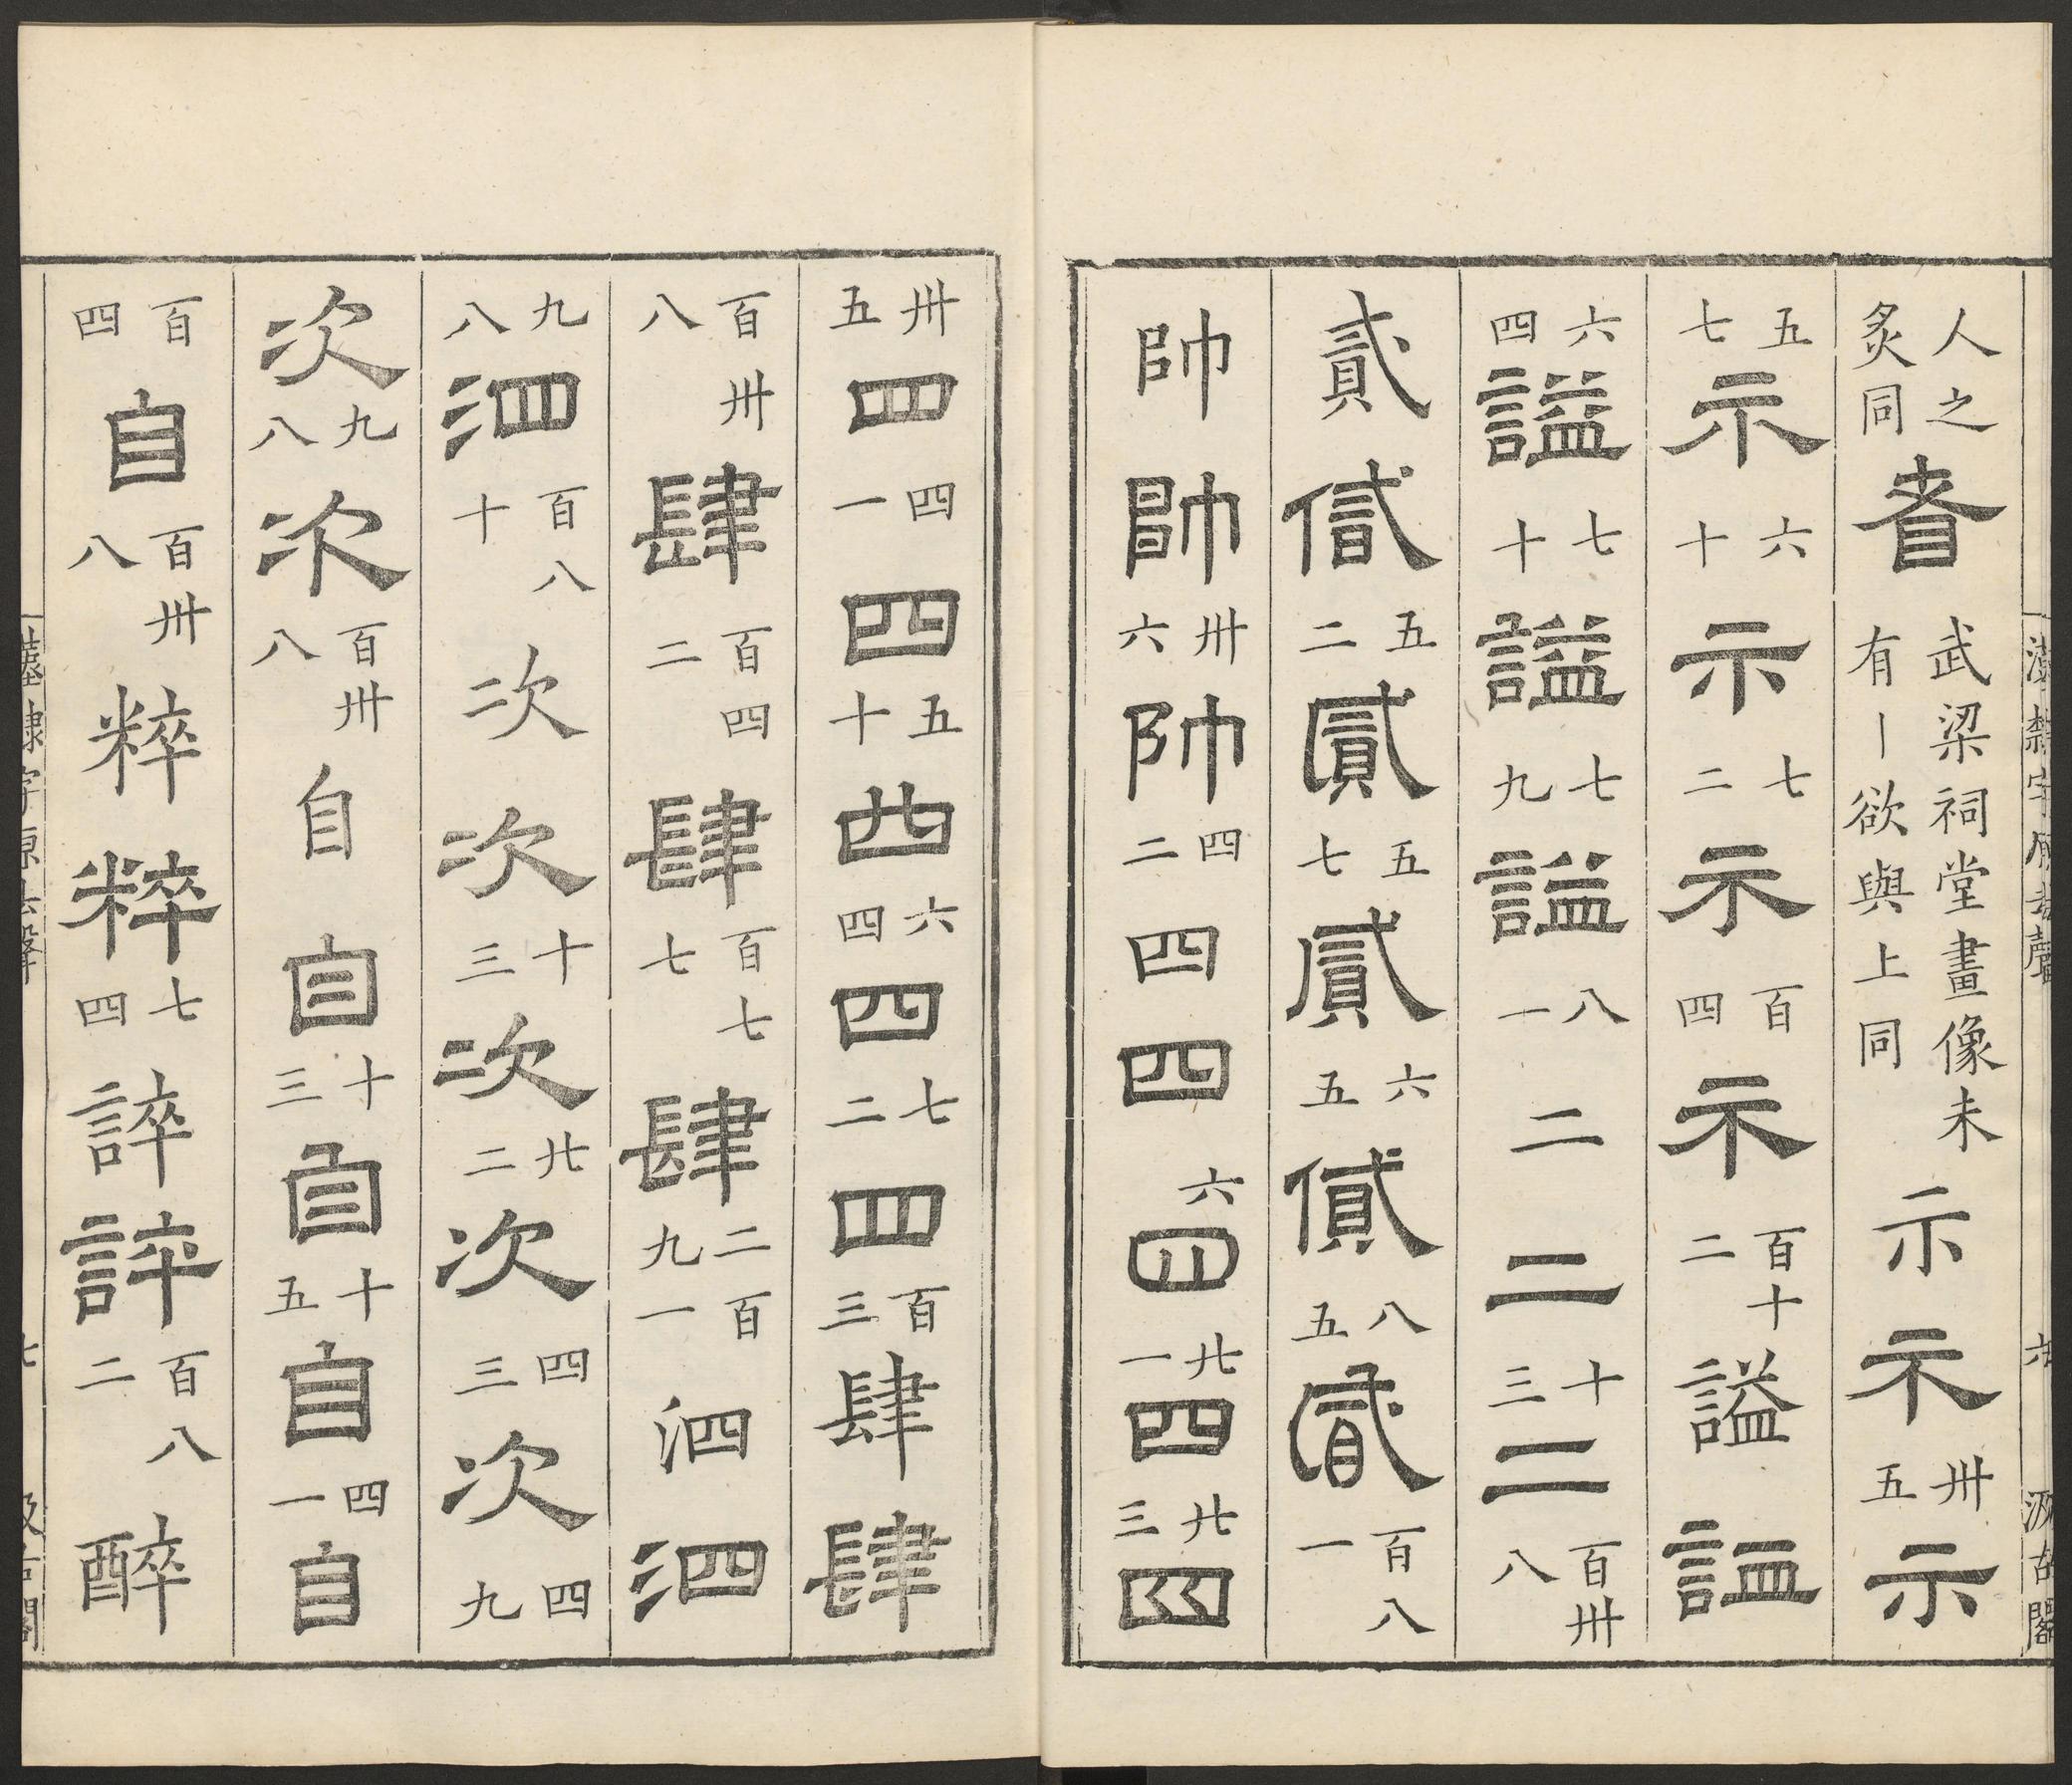 人之炙同 𦒿 武梁祠堂畫像未有丨欲與上同 示 示 卅五 示
五七 示 六十 示 七二 示 百四 示 百十二 謚 謚
六四 謚 七十 謚 七九 謚 八一 二 二 十三 二 百卅八
貳 貳 五二 貳 五七 貳 六五 貳 八五 貳 百八一
帥 帥 卅六 帥 四二 四 四 六 四 廿一 四 廿三 四
漢隸字原去聲 六 汲古閣
卅五 四 四一 四 五十 四 六四 四 七二 四 百三 肆 肆
百卅八 肆 百四二 肆 百七七 肆 二百九一 泗 泗
九八 泗 百八十 次 次 十三 次 廿二 次 四三 次 四九
次 九八 次 百卅八 自 自 十三 自 十五 自 四一 自
百四 自 百卅八 粹 粹 七四 誶 誶 百八二 醉
漢隸字原去聲 七 汲古閣